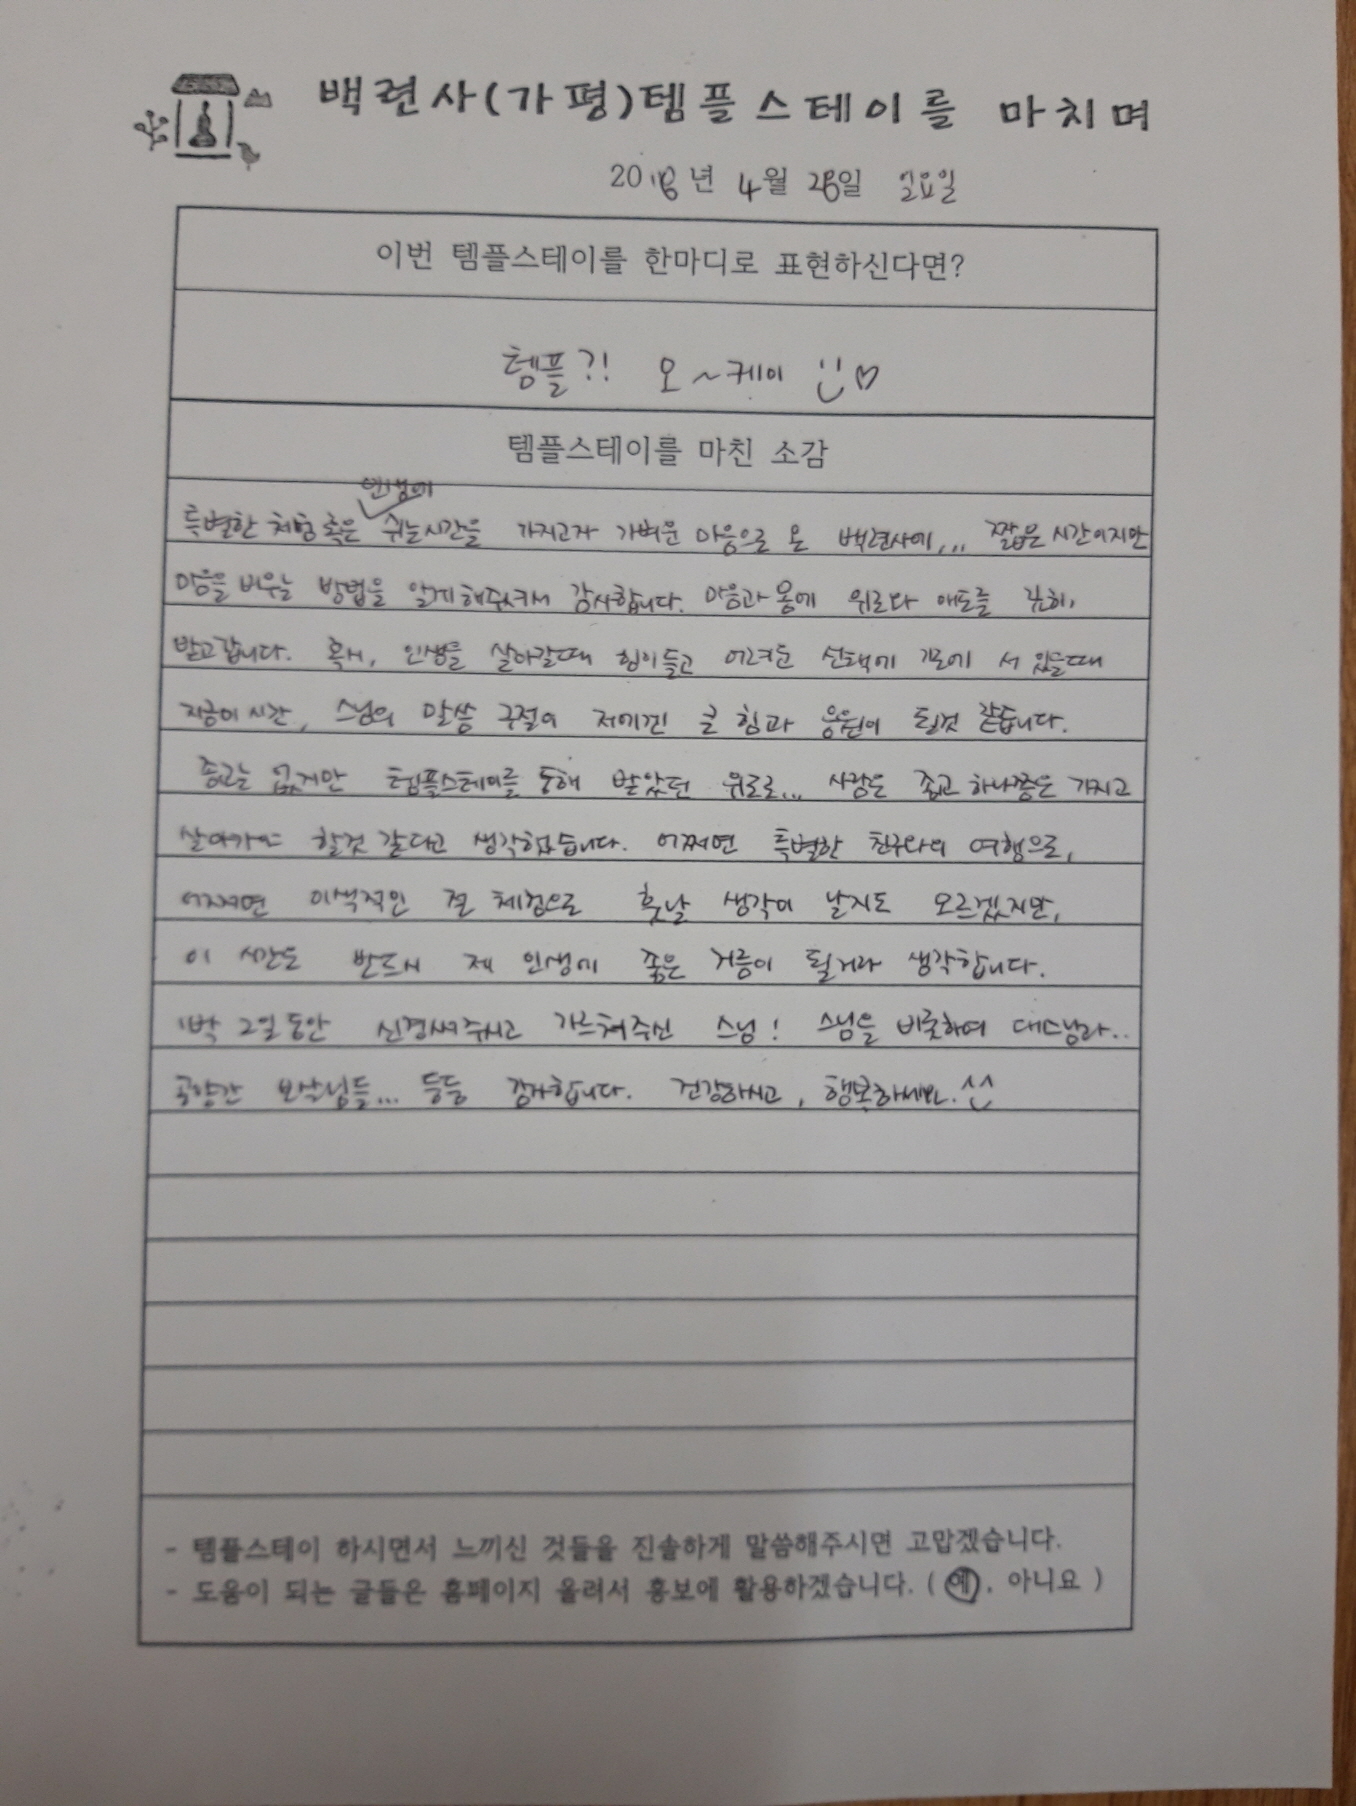 백련사(가평)템플스테이를 마치며
2018년 4월 28일 일요일
이번 템플스테이를 한마디로 표현하신다면?
템플?! 오~케이
템플스테이를 마친 소감
인생에
특별한 체험 혹은 쉬는시간을 가지고자 가벼운 마음으로 온 백련사에... 짧은 시간이지만
마음을 비우는 방법을 알게해주셔서 감사합니다. 마음과 몸에 위로와 애도를
받고갑니다. 혹시, 인생을 살아갈때 힘이들고 어려운 선택에 기로에 서 있을때
지금이 시간, 스님의 말씀 구절이 저에겐 큰 힘과 응원이 될것 같습니다.
종교는 없지만 템플스테이를 통해 받았던 위로로... 사람은 종교 하나쯤은 가지고
살아가야 할것 같다고 생각했습니다. 어쩌면 특별한 친구와의 여행으로,
어쩌면 이색적인 절 체험으로 훗날 생각이 날지도 모르겠지만,
이 시간도 반드시 제 인생에 좋은 거름이 될거라 생각합니다.
1박 2일동안 신경써주시고 가르쳐주신 스님! 스님을 비롯하여
공양간 보살님들... 등등 감사합니다. 건강하시고, 행복하세요. ^^
- 템플스테이 하시면서 느끼신 것들을 진솔하게 말씀해주시면 고맙겠습니다.
- 도움이 되는 글들은 홈페이지 올려서 홍보에 활용하겠습니다. ( 예, 아니요 )